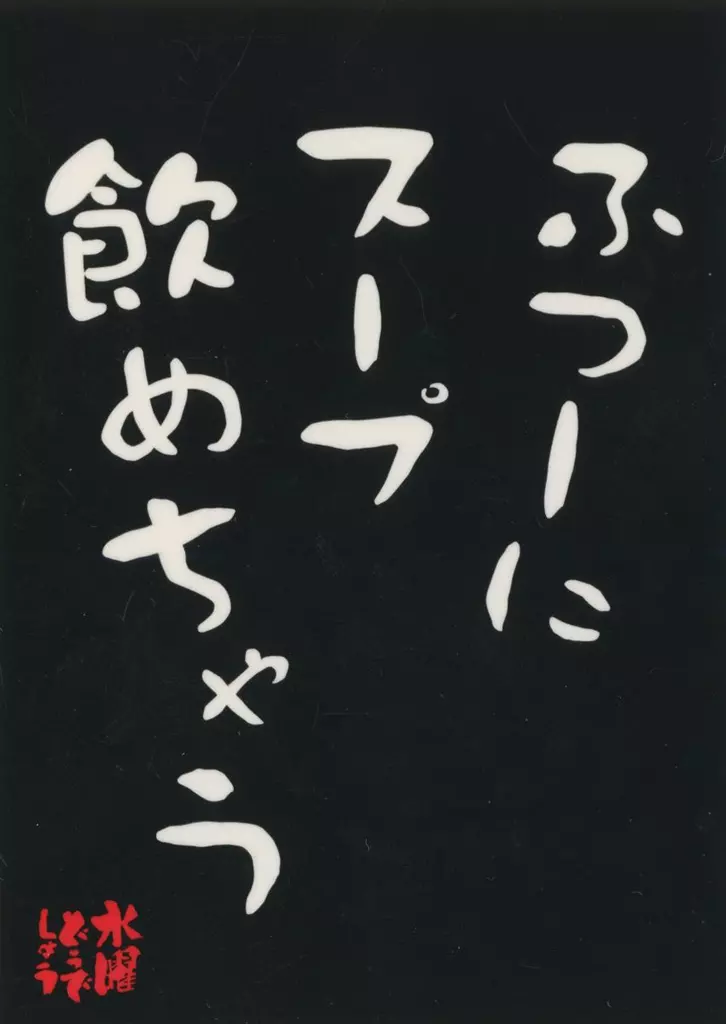 ふつーに
スープ
飲めちゃう
水曜
どうで
しょう